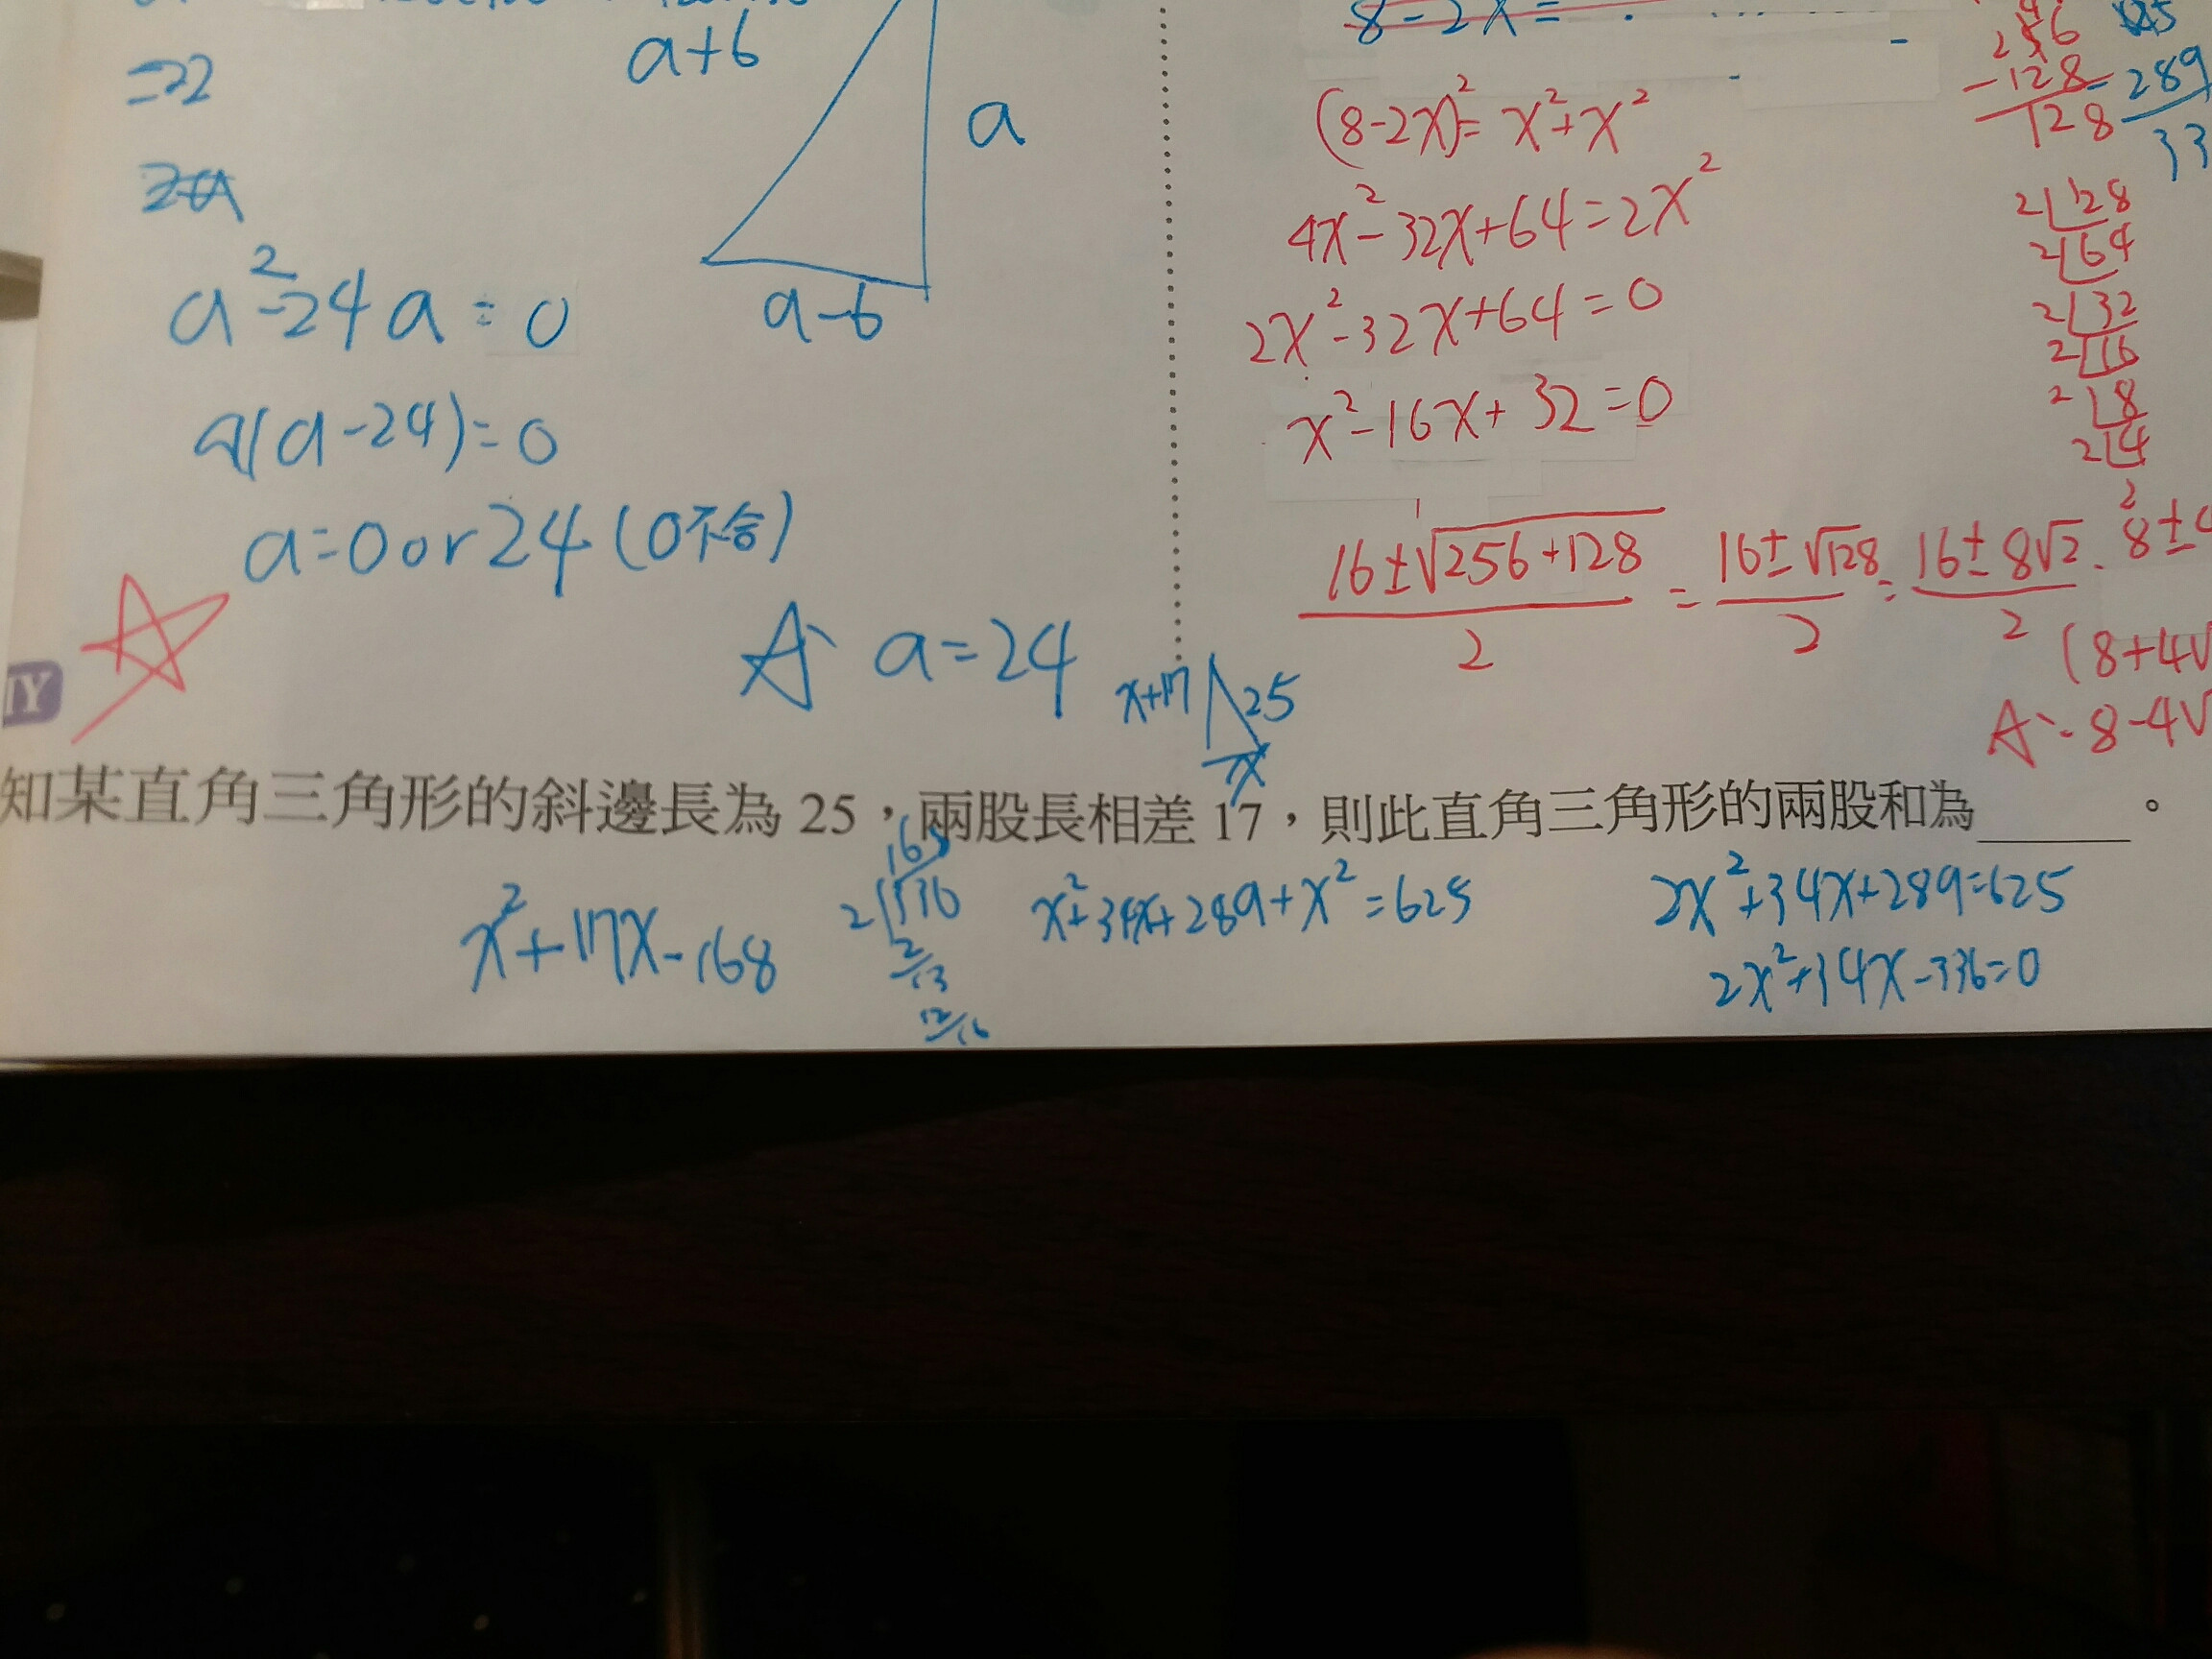 =22
a²-24a=0
a(a-24)=0
a=0 or 24 (0不合)
A、a=24
a+6
a
a-6
8-2x=
(8-2x)²=x²+x²
4x²-32x+64=2x²
2x²-32x+64=0
x²-16x+32=0
16±√256+128
2
= 16±√128
2
= 16±8√2
2
8±4
(8+4√
A、8-4√
256
-128
128
289
33
2 128
2 64
2 32
2 16
2 8
2 4
2
IY
x+17
25
x
知某直角三角形的斜邊長為 25,兩股長相差 17,則此直角三角形的兩股和為______。
x²+17x-168
168
2 336
2
13
12
16
x²+34x+289+x²=625
2x²+34x+289=625
2x²+34x-336=0